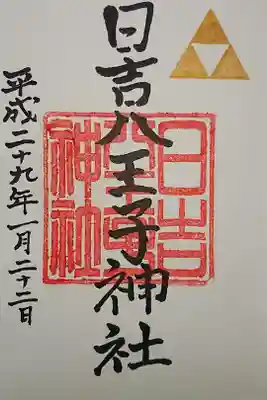 日吉八王子神社
平成二十九年一月二十二日
日吉
八王子
神社